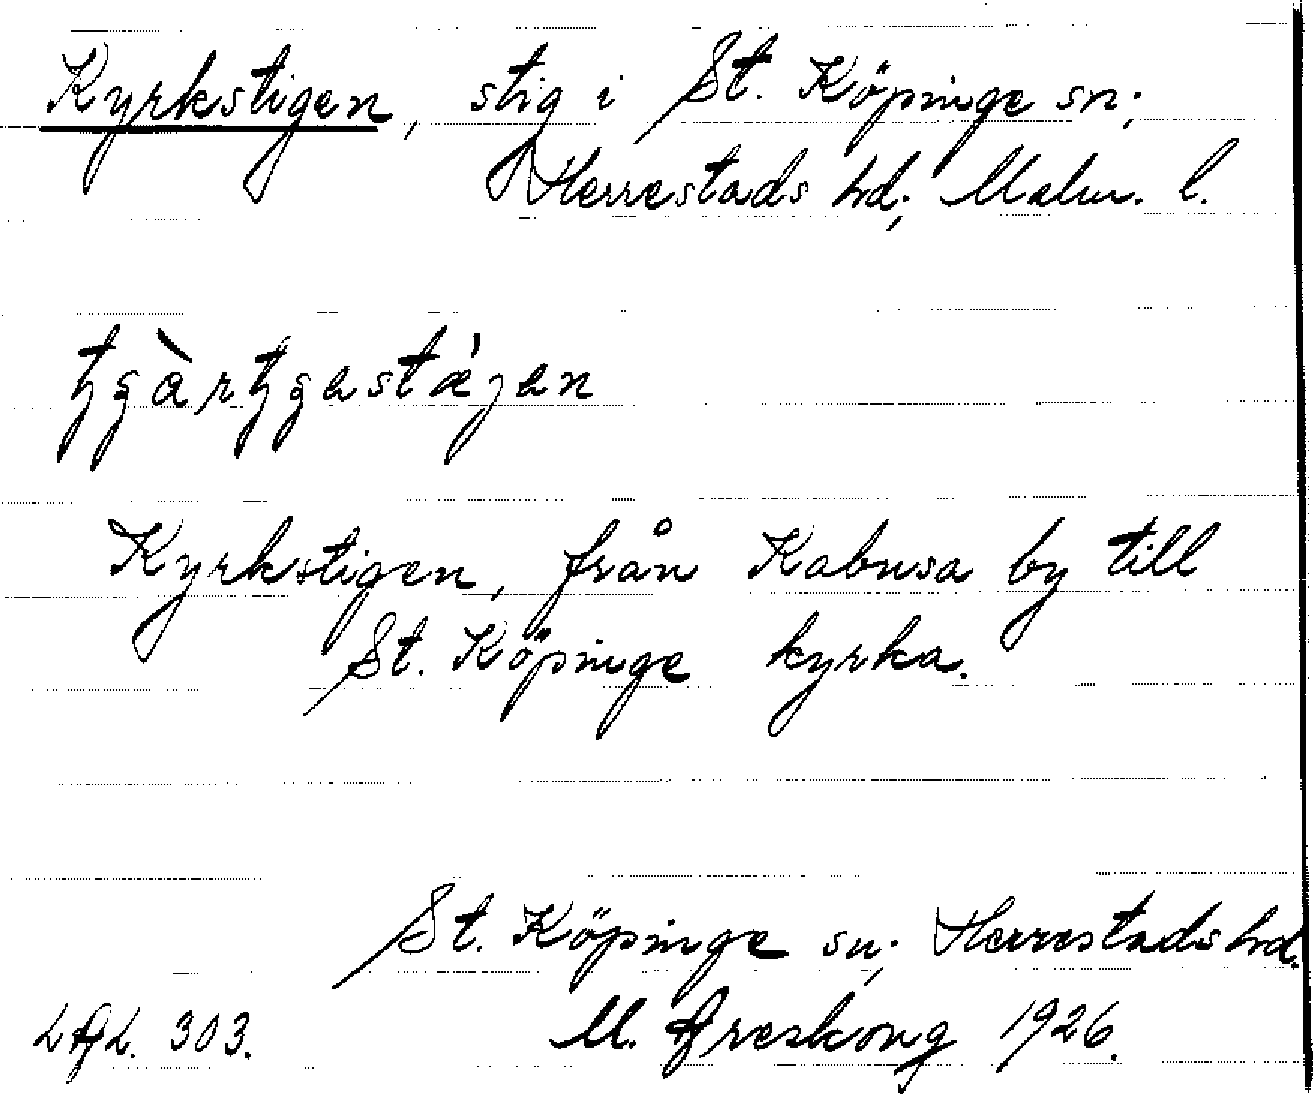 Kyrkstigen, stig i St. Köpinge sn;
Herrestads hd; Malm. l.
Kyrkstigen, från Kabusa by till
St. Köpinge kyrka.
St. Köpinge sn; Herrestads hd.
303. M. 1926.